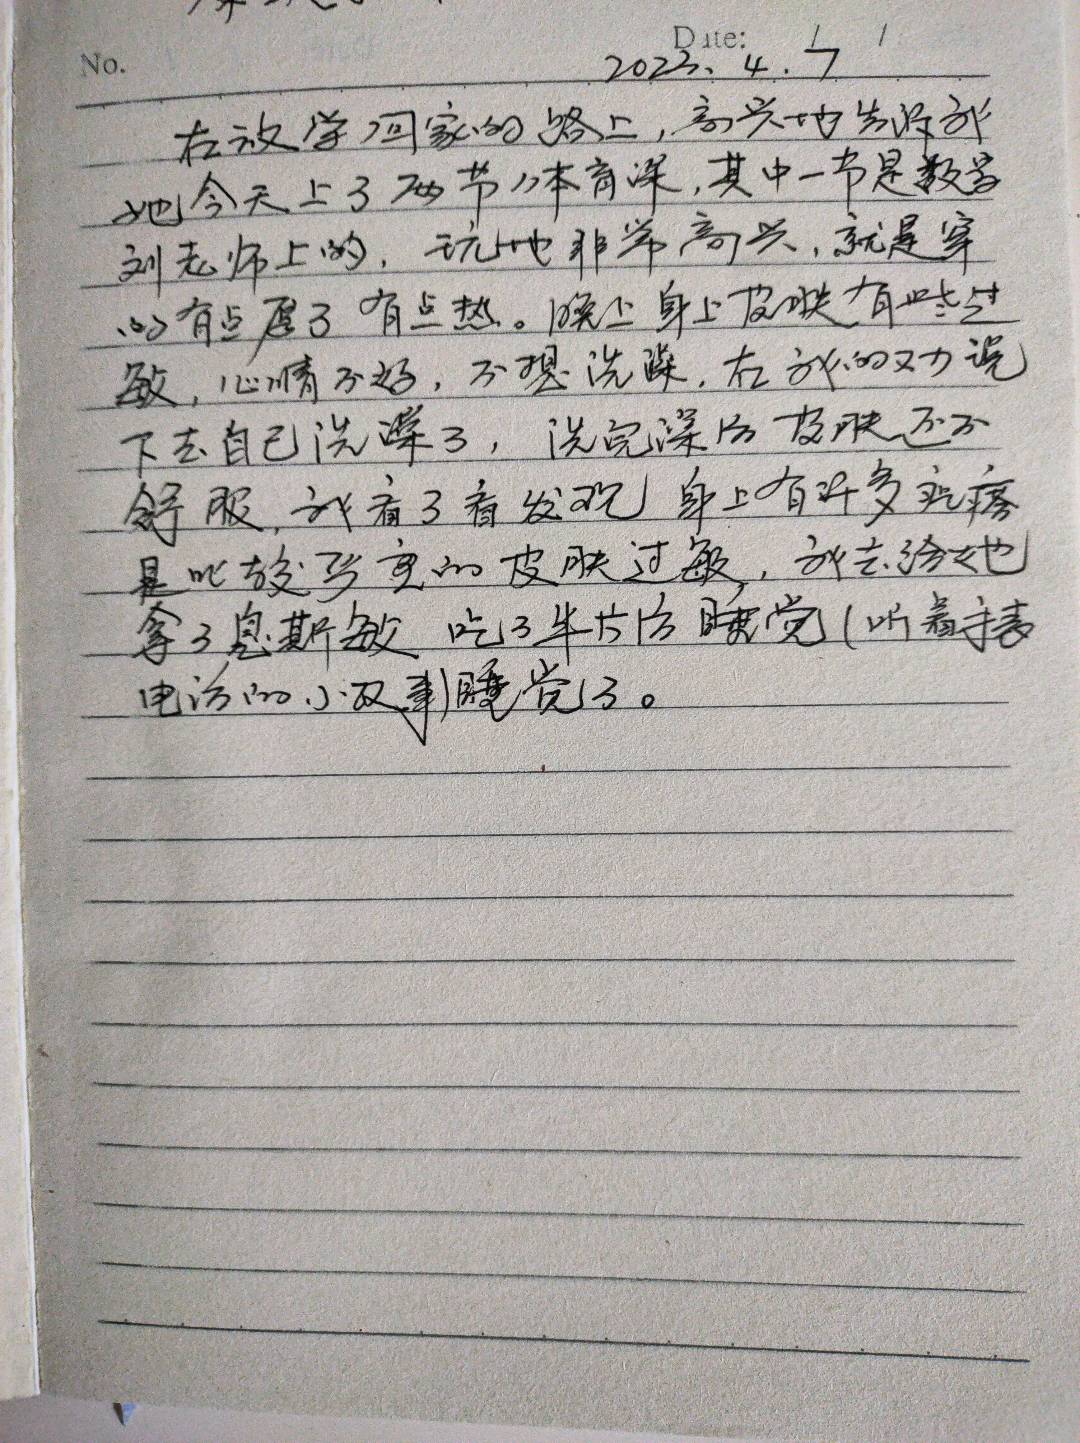 No.
Date: / /
2023.4.7
在放学回家的路上，高兴地告诉我
她今天上了两节体育课，其中一节是数学
刘老师上的，玩地非常高兴，就是穿
的有点厚了有点热。晚上身上皮肤有些过
敏，心情不好，不想洗澡，在我的劝说
下去自己洗澡了，洗完澡后皮肤还不
舒服，我看了看发现身上有许多疙瘩
是比较严重的皮肤过敏，我去给她
拿了息斯敏 吃了半片后睡觉（听着手表
电话的小故事）睡觉了。